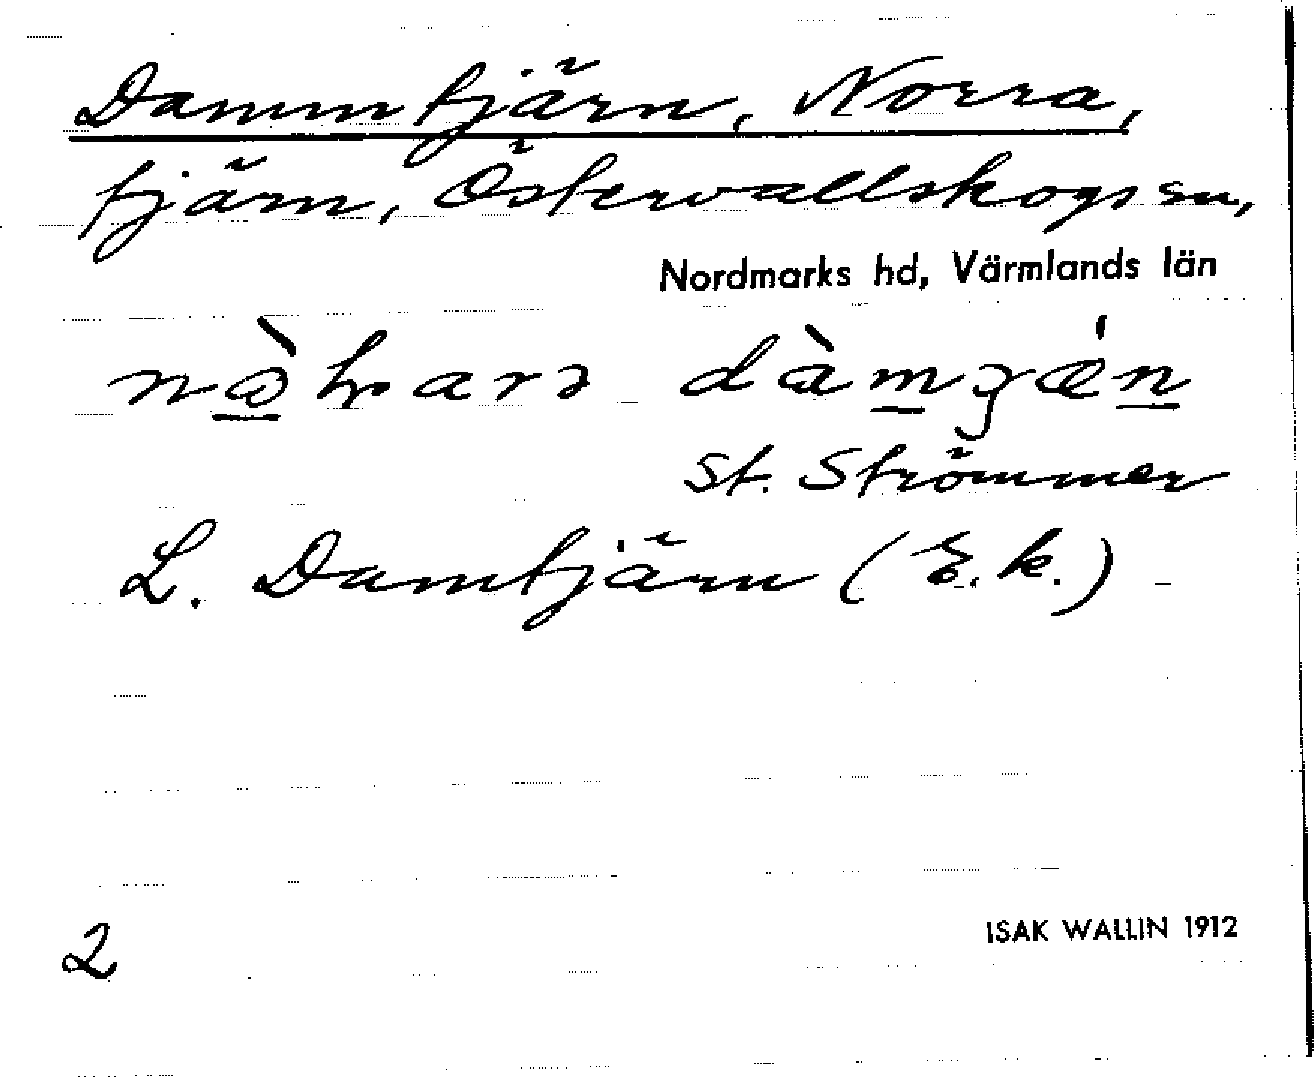 Dammtjärn, Norra,
tjärn, Östervallskogs sn,
Nordmarks hd, Värmlands län
St. Strömmer
L. Damtjärn (E.k.)
2
ISAK WALLIN 1912